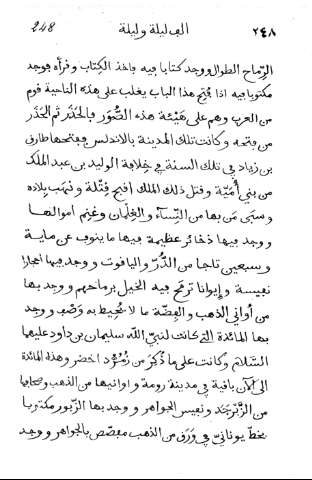 248 الف ليلة وليلة ٢٤٨
الرماح الطوال ووجد كتابا فيه فاخذ الكتاب وقرأه فوجد
مكتوبا فيه اذا فتح هذا الباب يغلب على هذه الناحية قوم
من العرب وهم على هَيْئة هذه الصُّوَر فالحَذَر ثم الحَذَر
من فتحه وكانت تلك المدينة بالاندلس ففتحها طارق
بن زياد في تلك السنة في خِلافة الوليد بن عبد الملك
من بني أُمَيّة وقتل ذلك الملك اقبح قِتْلة ونهب بلاده
وسبَى مَن بها من النِّسآء والغِلْمان وغنِم اموالها
ووجد فيها ذخائر عظيمة فيها ما ينوف عن ماية
وسبعين تاجا من الدُّرّ والياقوت ووجد فيها احجارا
نفيسة وإيوانا ترمح فيه الخيل برماحهم ووجد بها
من أواني الذهب والفِضّة ما لا يُحيط به وَصْف ووجد
بها المائدة التي كانت لنبيّ الله سليمان بن داود عليهما
السَّلام وكانت على ما ذُكِرَ من زُمُرُّد اخضر وهذه المائدة
الى الآن باقية في مدينة رومة واوانيها من الذهب وصحافها
من الزَّبَرْجَد ونفيس الجواهر ووجد بها الزَّبور مكتوبا
بخطّ يونانيّ في وَرَق من الذهب مفصّص بالجواهر ووجد